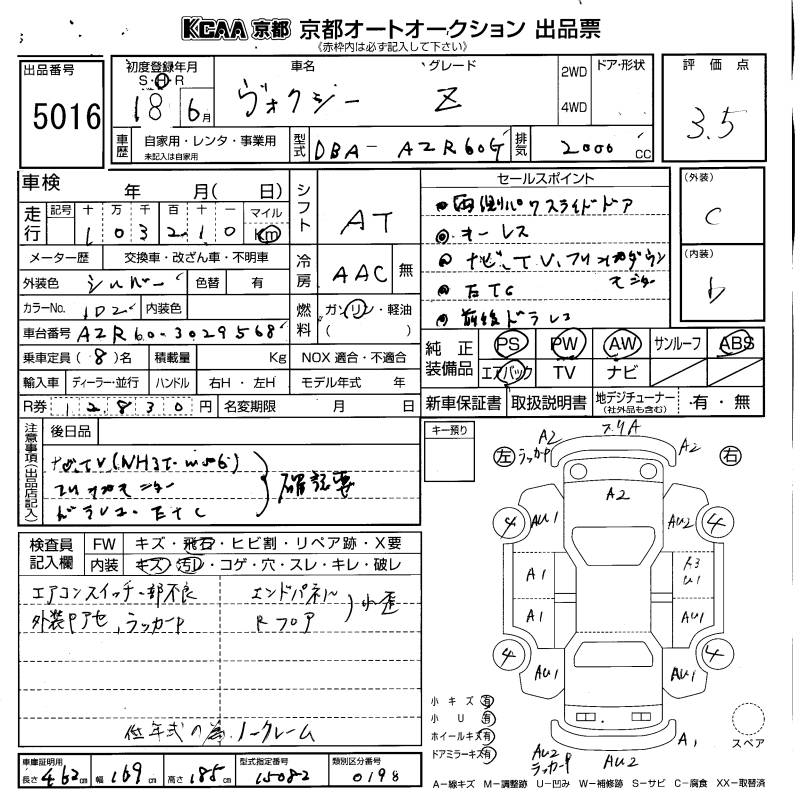 KCAA 京都 京都オートオークション 出品票
《赤枠内は必ず記入して下さい》
出品番号
5016
初度登録年月
S・H・R
18 6月
車名 グレード
ヴォクシー Z
2WD
4WD
ドア・形状
評価点
3.5
車歴 自家用・レンタ・事業用
未記入は自家用
型式 DBA-AZR60G
排気 2000 cc
車検 年 月( 日)
走行 記号 十 万 千 百 十 一 マイル
1 0 3 2 1 0 Km
シフト AT
メーター歴 交換車・改ざん車・不明車
外装色 シルバー 色替 有
冷房 AAC 無
カラーNo. 1D2 内装色
燃料 ガソリン・軽油
( )
車台番号 AZR60-3029568
乗車定員(8)名 積載量 Kg NOX 適合・不適合
輸入車 ディーラー・並行 ハンドル 右H・左H モデル年式 年
R券 12830円 名変期限 月 日
セールスポイント
両側パワスライドドア
オーレス
ナビ、TV、フリップダウンモニター
ETC
前後ドラレコ
(外装)
C
(内装)
b
純正装備品 PS PW AW サンルーフ ABS
エアバック TV ナビ
新車保証書 取扱説明書 地デジチューナー
(社外品も含む) 有・無
注意事項(出品店記入)
後日品
ナビTV(NH3T-W56)
フリップモニター
ドラレコ・ETC
確認要
キー預り
検査員記入欄 FW キズ・飛石・ヒビ割・リペア跡・X要
内装 キズ・汚レ・コゲ・穴・スレ・キレ・破レ
エアコンスイッチ一部不良
外装Pアセ、ラッカーP
エンドパネル
Rフロア
小歪
低年式の為、ノークレーム
左 右
A2
ラッカーP
スリA
A2
A2
4 AU1 AU2 4
A1 A3
U1
A1 AU1
4 AU1 AU1 4
小キズ 有
小U 有
ホイールキズ 有
ドアミラーキズ 有
AU2
ラッカーP
AU2
A1
スペア
車庫証明用
長さ 462cm 幅 169cm 高さ 185cm
型式指定番号
15082
類別区分番号
0198
A-線キズ M-調整跡 U-凹み W-補修跡 S-サビ C-腐食 XX-取替済